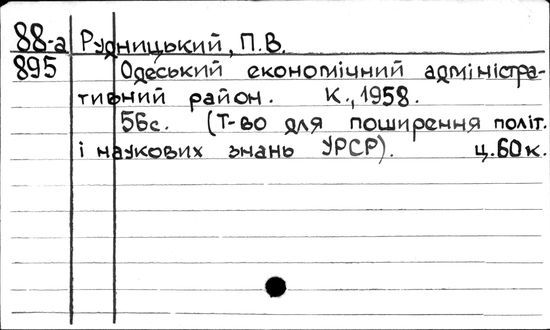 88-а Рудницький, П.В.
895 Одеський економічний адміністра-
тивний район. К., 1958.
56с. (Т-во для поширення політ.
і наукових знань УРСР). ц.60к.